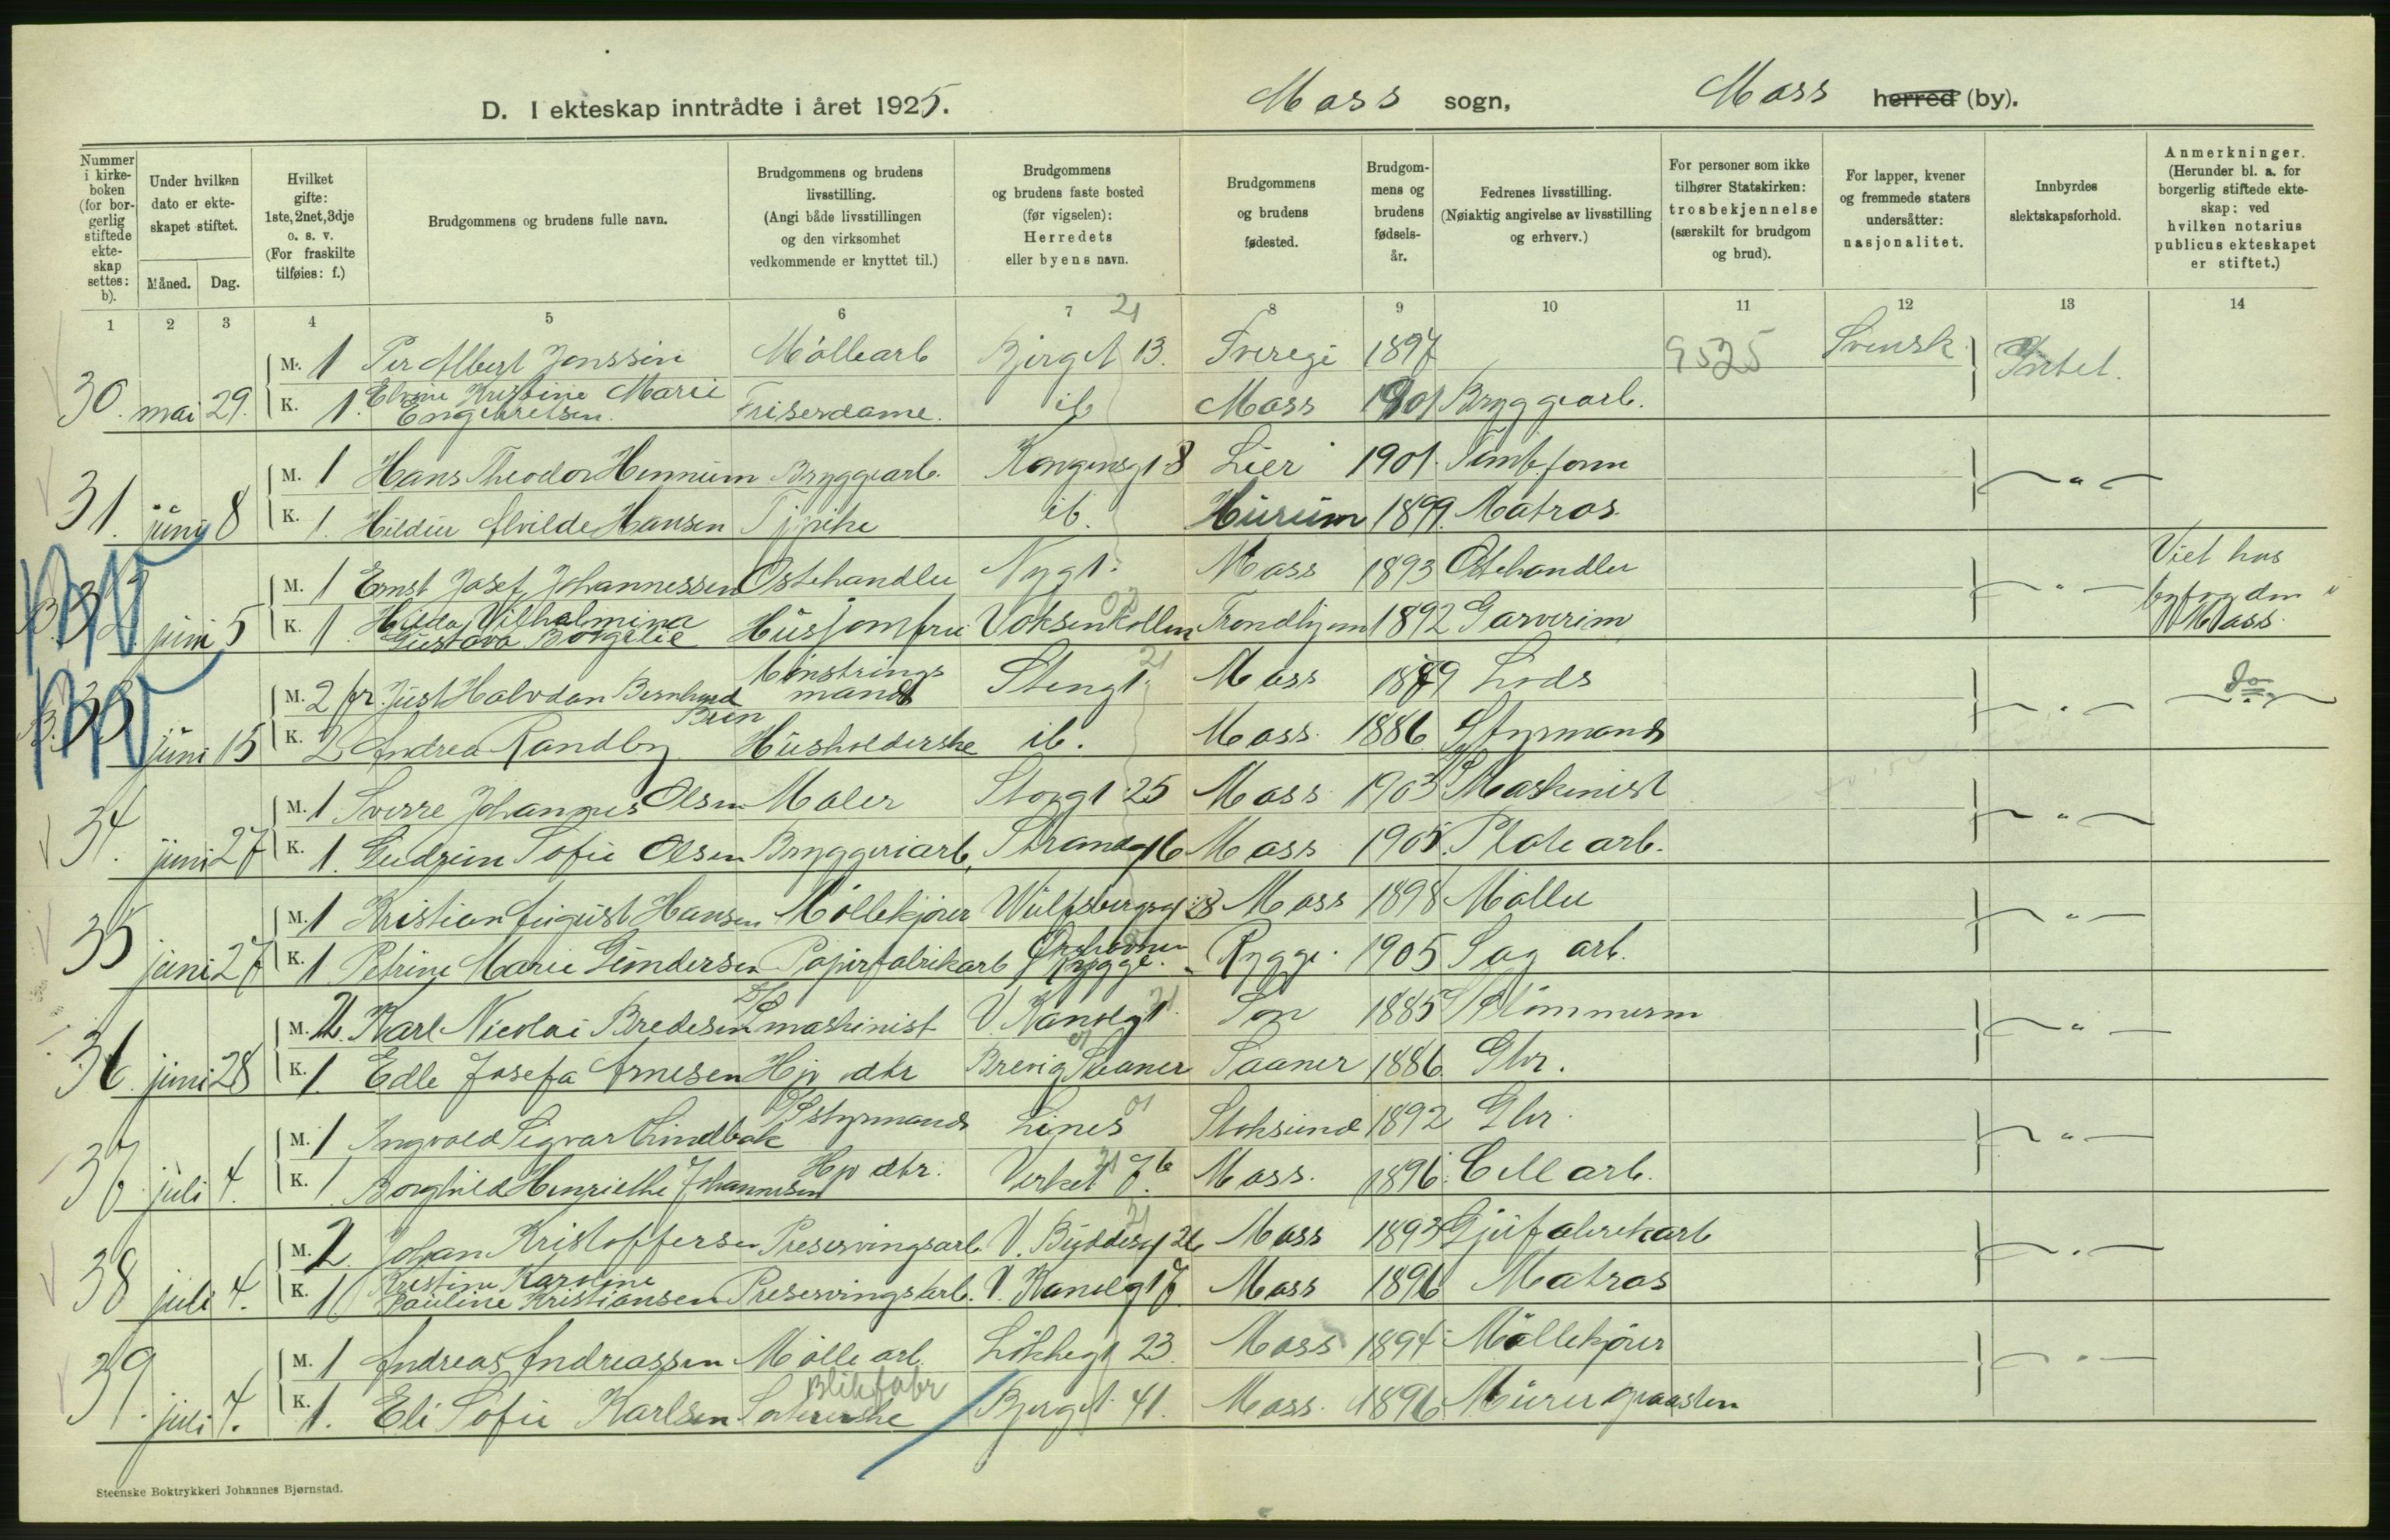 D. I ekteskap inntrådte i året 1925. Moss sogn, Moss herred (by).
Nummer i kirkeboken (for borgerlig stiftede ekteskap settes: b).
Under hvilken dato er ekteskapet stiftet.
Måned. Dag.
Hvilket gifte: 1ste, 2net, 3dje o. s. v. (For fraskilte tilføies: f.)
Brudgommens og brudens fulle navn.
Brudgommens og brudens livsstilling. (Angi både livsstillingen og den virksomhet vedkommende er knyttet til.)
Brudgommens og brudens faste bosted (før vigselen): Herredets eller byens navn.
Brudgommens og brudens fødested.
Brudgommens og brudens fødselsår.
Fedrenes livsstilling. (Nøiaktig angivelse av livsstilling og erhverv.)
For personer som ikke tilhører Statskirken: trosbekjennelse (særskilt for brudgom og brud).
For lapper, kvener og fremmede staters undersåtter: nasjonalitet.
Innbyrdes slektskapsforhold.
Anmerkninger. (Herunder bl. a. for borgerlig stiftede ekteskap: ved hvilken notarius publicus ekteskapet er stiftet.)
1 2 3 4 5 6 7 8 9 10 11 12 13 14
21
M. 1 Per Albert Jonssen Möllearb Bjerget 13. Sverige 1897 9525 Svensk Intet.
30. mai 29. K. 1. Elvine Kristine Marie Engebretsen. Friserdame. ib Moss 1901 Bryggearb.
M. 1 Hans Theodor Hennum Bryggearb. Kongensgt 8 Lier 1901. Tömb.form „
31. juni 8 K. 1. Hildur Alvilde Hansen ib. Hurum 1899. Matros
M. 1 Ernst Josef Johannessen Ostehandler Nygt. Moss 1893 Ostehandler „ Viet hos byfogden i Moss.
B. 32 juni 5 K. 1 Hilda Vilhelmina Gustava Borgelie Husjomfru Voksenkollen Trondhjem 1892 Garverim
M. 2 fr. Just Halvdan Bernhard Brun Mönstringsmand Stengt. 21 Moss 1879 Lods „ do
B. 33 juni 15 K. 2 Andrea Randby Husholderske ib. Moss. 1886 Styrmand
M. 1 Sverre Johannes Olsen Maler Storgt 25 Moss 1903 Maskinist „
34. juni 27 K. 1. Gudrun Sofie Olsen Bryggeriarb, Strandg 16 Moss 1905. Platearb.
M. 1 Kristian August Hansen Möllekjörer Wulfsbergsgt 28 Moss 1898 Möller „
35 juni 27 K. 1 Petrine Marie Gundersen Papirfabrikarb Rygge. Rygge. 1905 Sag arb.
M. 2. Karl Nicolai Bredesen maskinist V. Kanalgt. 21 Son 1885 Tömmerm „
36. juni 28 K. 1. Edle Josefa Arnesen Hjv dtr Brevig Saaner Saaner 1886 Gbr.
M. 1 Ingvald Sigvart Lindbak Styrmand Lines 01 Stoksund 1892 Gbr. „
37 juli 4. K. 1 Borghild Henriette Johannesen Hjv dtr. Verket 76. Moss. 1896. Cell arb.
M. 2. Johan Kristoffersen Preservingsarb. V. 26 Moss 1893 Gjufabrikarb „
38 juli 4. K. 1 Kristine Karoline Pauline Kristiansen Preservingsarb. V. Kanalgt 7 Moss 1896 Matros
M. 1 Andreas Andreassen Mölle arb. Lökkegt 23. Moss 1894 Möllekjörer „
39. juli 4. K. 1. Eli Sofie Karlsen Sorterske Blikfabr Bjerget 41. Moss. 1896 Murer graasten
Steenske Boktrykkeri Johannes Bjørnstad.